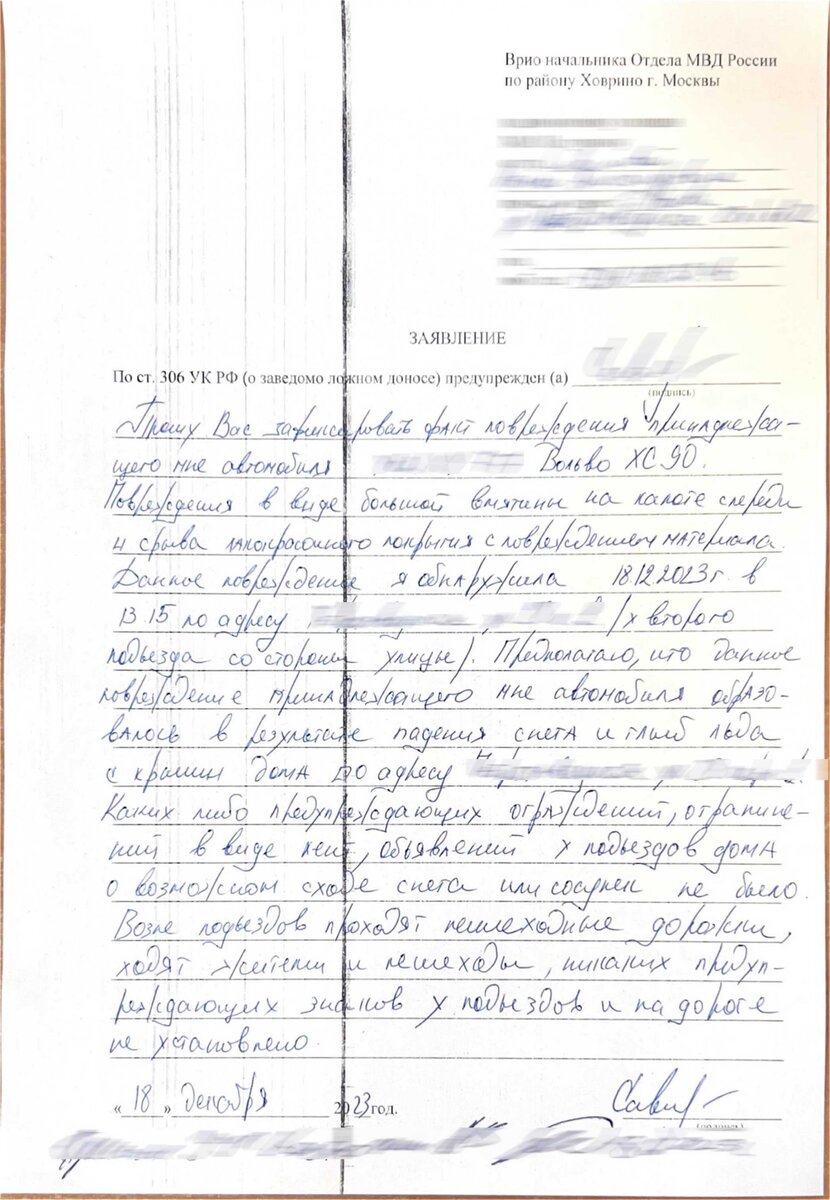 Врио начальника Отдела МВД России
по району Ховрино г. Москвы
ЗАЯВЛЕНИЕ
По ст. 306 УК РФ (о заведомо ложном доносе) предупрежден (а)
(подпись)
Прошу Вас зафиксировать факт повреждения принадлежа-
щего мне автомобиля Вольво ХС 90.
Повреждения в виде большой вмятины на капоте спереди
и срыва лакокрасочного покрытия с повреждением материала.
Данное повреждение я обнаружила 18.12.2023г. в
13.15 по адресу (у второго
подъезда со стороны улицы). Предполагаю, что данное
повреждение принадлежащего мне автомобиля образо-
валось в результате падения снега и глыб льда
с крыши дома по адресу
Каких либо предупреждающих ограждений, ограниче-
ний в виде лент, объявлений у подъездов дома
о возможном сходе снега или сосулек не было.
Возле подъездов проходят пешеходные дорожки,
ходят жители и пешеходы, никаких предуп-
реждающих знаков у подъездов и на дороге
не установлено.
« 18 » декабря 2023 год.
(подпись)